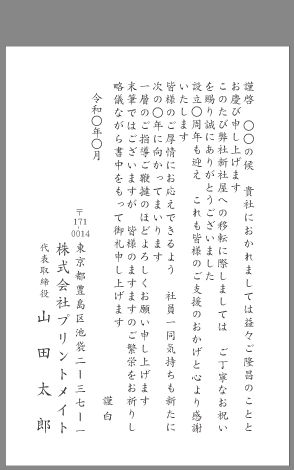 謹啓　〇〇の候　貴社におかれましては益々ご隆昌のことと
お慶び申し上げます
このたび弊社新社屋への移転に際しましては　ご丁寧なお祝い
を賜り誠にありがとうございました
設立〇周年も迎え　これも皆様のご支援のおかげと心より感謝
いたします
皆様のご厚情にお応えできるよう　社員一同気持ちも新たに
次の〇年に向かってまいります
一層のご指導ご鞭撻のほどよろしくお願い申し上げます
末筆ではございますが　皆様のますますのご繁栄をお祈りし
略儀ながら書中をもって御礼申し上げます
謹白
令和〇年〇月
〒171-0014
東京都豊島区池袋二ー三七ー一
株式会社プリントメイト
代表取締役　山田太郎